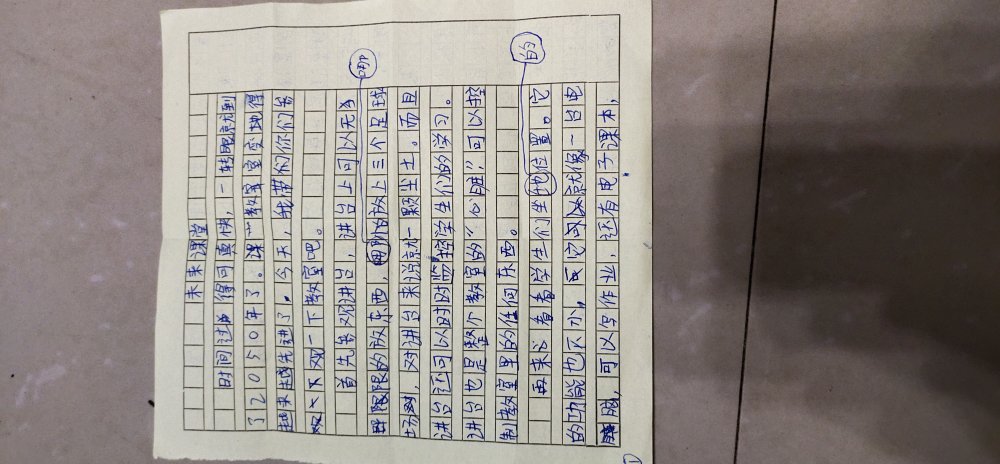 未来课堂
时间过的得可真快，一转眼就到
了2050年了。课教室变地得
越来越先进了。今天，我带的你们去
观一下观一下教室吧。
首先参观讲台，讲台上可以无
限限的放东西，哪怕放上三个足球
场，对讲台来说就一颗尘土。而且
讲台还可以时时监控学生们的学习。
讲台也是整个教室的“心脏”可以控
制教室里的任何东西。
再来看看学生们坐的位置。它
的功能也不小，可它就像一台电
脑，可以写作业，还有电子课本，
1